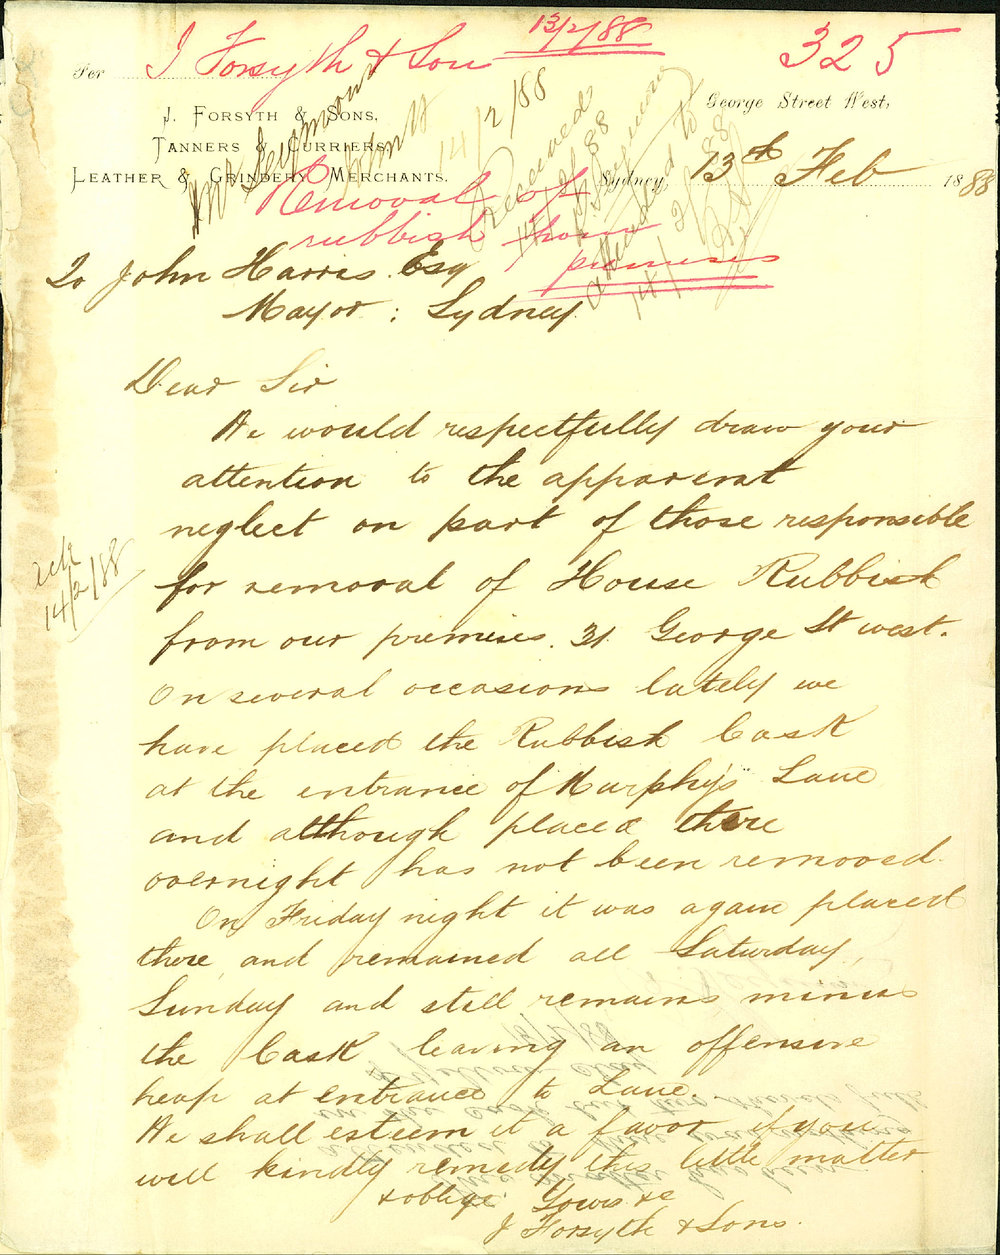 13/2/88
Per J Forsyth & Son 325
J. Forsyth & Sons,
Tanners & Curriers,
Leather & Grindery Merchants.
George Street West,
Sydney, 13th Feb 1888
Mr Seymour
14/2/88
Removal of
rubbish from
premises
Received
14/2/88
attended to
14/2/88
To John Harris. Esq
Mayor: Sydney.
Dear Sir
We would respectfully draw your
attention to the apparent
neglect on part of those responsible
for removal of House Rubbish
from our premises. 31 George St west.
On several occasions lately we
have placed the Rubbish Cask
at the entrance of Murphy's Lane
and although placed there
overnight has not been removed.
On Friday night it was again placed
there and remained all Saturday,
Sunday and still remains minus
the Cask leaving an offensive
heap at entrance to Lane
We shall esteem it a favor if you
will kindly remedy this little matter
& oblige. Yours &c
J Forsyth & Sons.
14/2/88